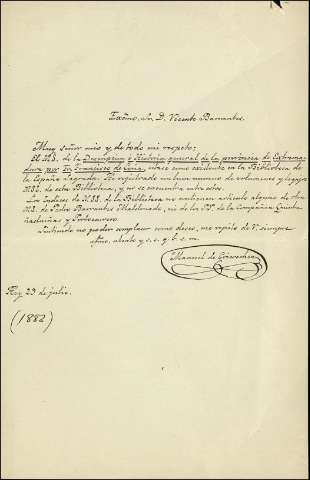 Exmo. Sr. D. Vicente Barrantes
Muy señor mio y de todo mi respeto:
El MS. de la Descripcion e Historia general de la provincia de Extrema-
dura por Fr. Francisco de Coria, como existente en la Biblioteca de
la España Sagrada. He registrado un buen numero de volumenes y legajos
MSS. de esta Biblioteca, y no se encuentra entre ellos.
Los Indices de MSS. de la Biblioteca no contienen articulo alguno de
MS. de Pedro Barrantes Maldonado, ni de los PP. de la Compañia
y Portocarrero.
Sintiendo no poder complacer como deseo, me repito de V. siempre
atmo. y s. s. q. b. s. m.
Manuel de
Hoy 23 de julio.
(1882)